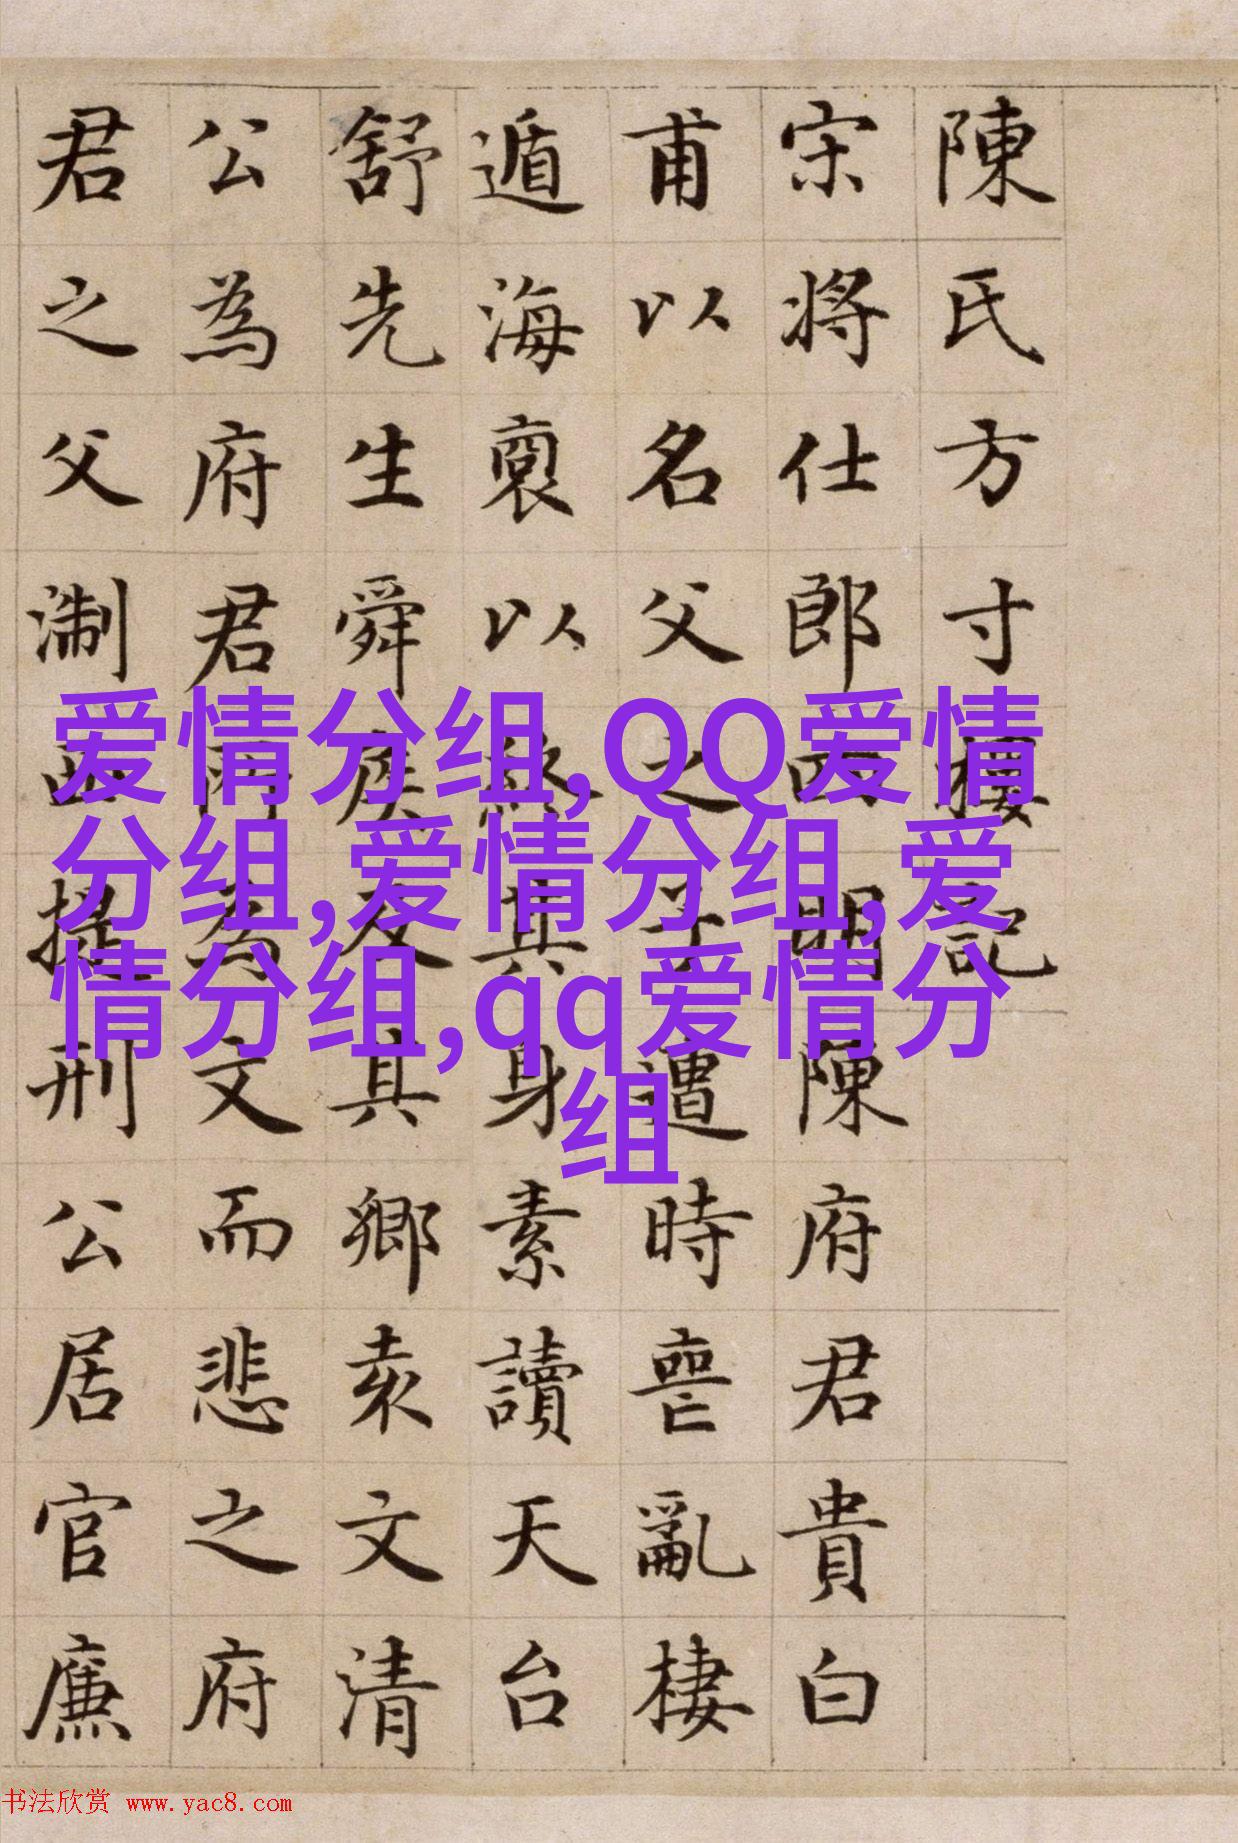 陳氏方寸樓記
宋將仕郎四明陳府君貴白
甫以名父之子遭時喪亂棲
遁海裔以終其身素讀天台
舒先生舜矦及其鄉袁文清
公為府君兩為文而悲之府
君之父淛西提刑公居官廉
爱情分组,QQ爱情
分组,爱情分组,爱
情分组,qq爱情分
组
书法欣赏 www.yac8.com